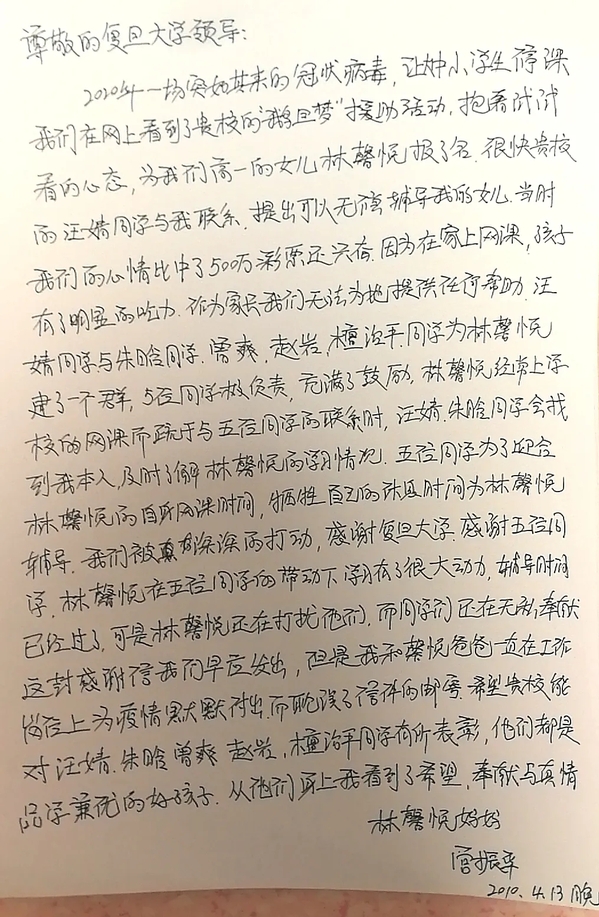 尊敬的复旦大学领导:
2020年一场突如其来的冠状病毒,让中小学生停课
我们在网上看到了贵校的"鹅旦梦"援助活动,抱着试试
看的心态,为我们高一的女儿林馨悦报了名.很快贵校
的汪婧同学与我联系.提出可以无偿辅导我的女儿.当时
我们的心情比中了500万彩票还兴奋.因为在家上网课,孩子
有了明显的吃力.作为家长我们无法为她提供任何帮助.汪
婧同学与朱晗同学.曾爽.赵岩,檀治平同学为林馨悦
建了一个群,5位同学极负责,充满了鼓励,林馨悦经常上学
校的网课而疏于与五位同学的联系时,汪婧.朱晗同学会找
到我本人,及时了解林馨悦的学习情况.五位同学为了迎合
林馨悦的自所网课时间,牺牲自己的休息时间为林馨悦
辅导.我们被深深的打动,感谢复旦大学.感谢五位同
学.林馨悦在五位同学的带动下学习有了很大动力,辅导时间
已经过了,可是林馨悦还在打扰他们.而同学们还在无私奉献
这封感谢信我们早应发出,但是我和馨悦爸爸一直在工作
岗位上为疫情默默付出.而耽误了信件的邮寄.希望贵校能
对汪婧.朱晗 曾爽 赵岩,檀治平同学有所表彰,他们都是
品学兼优的好孩子.从他们身上我看到了希望,奉献与真情
林馨悦妈妈
振平
2010.4.13晚